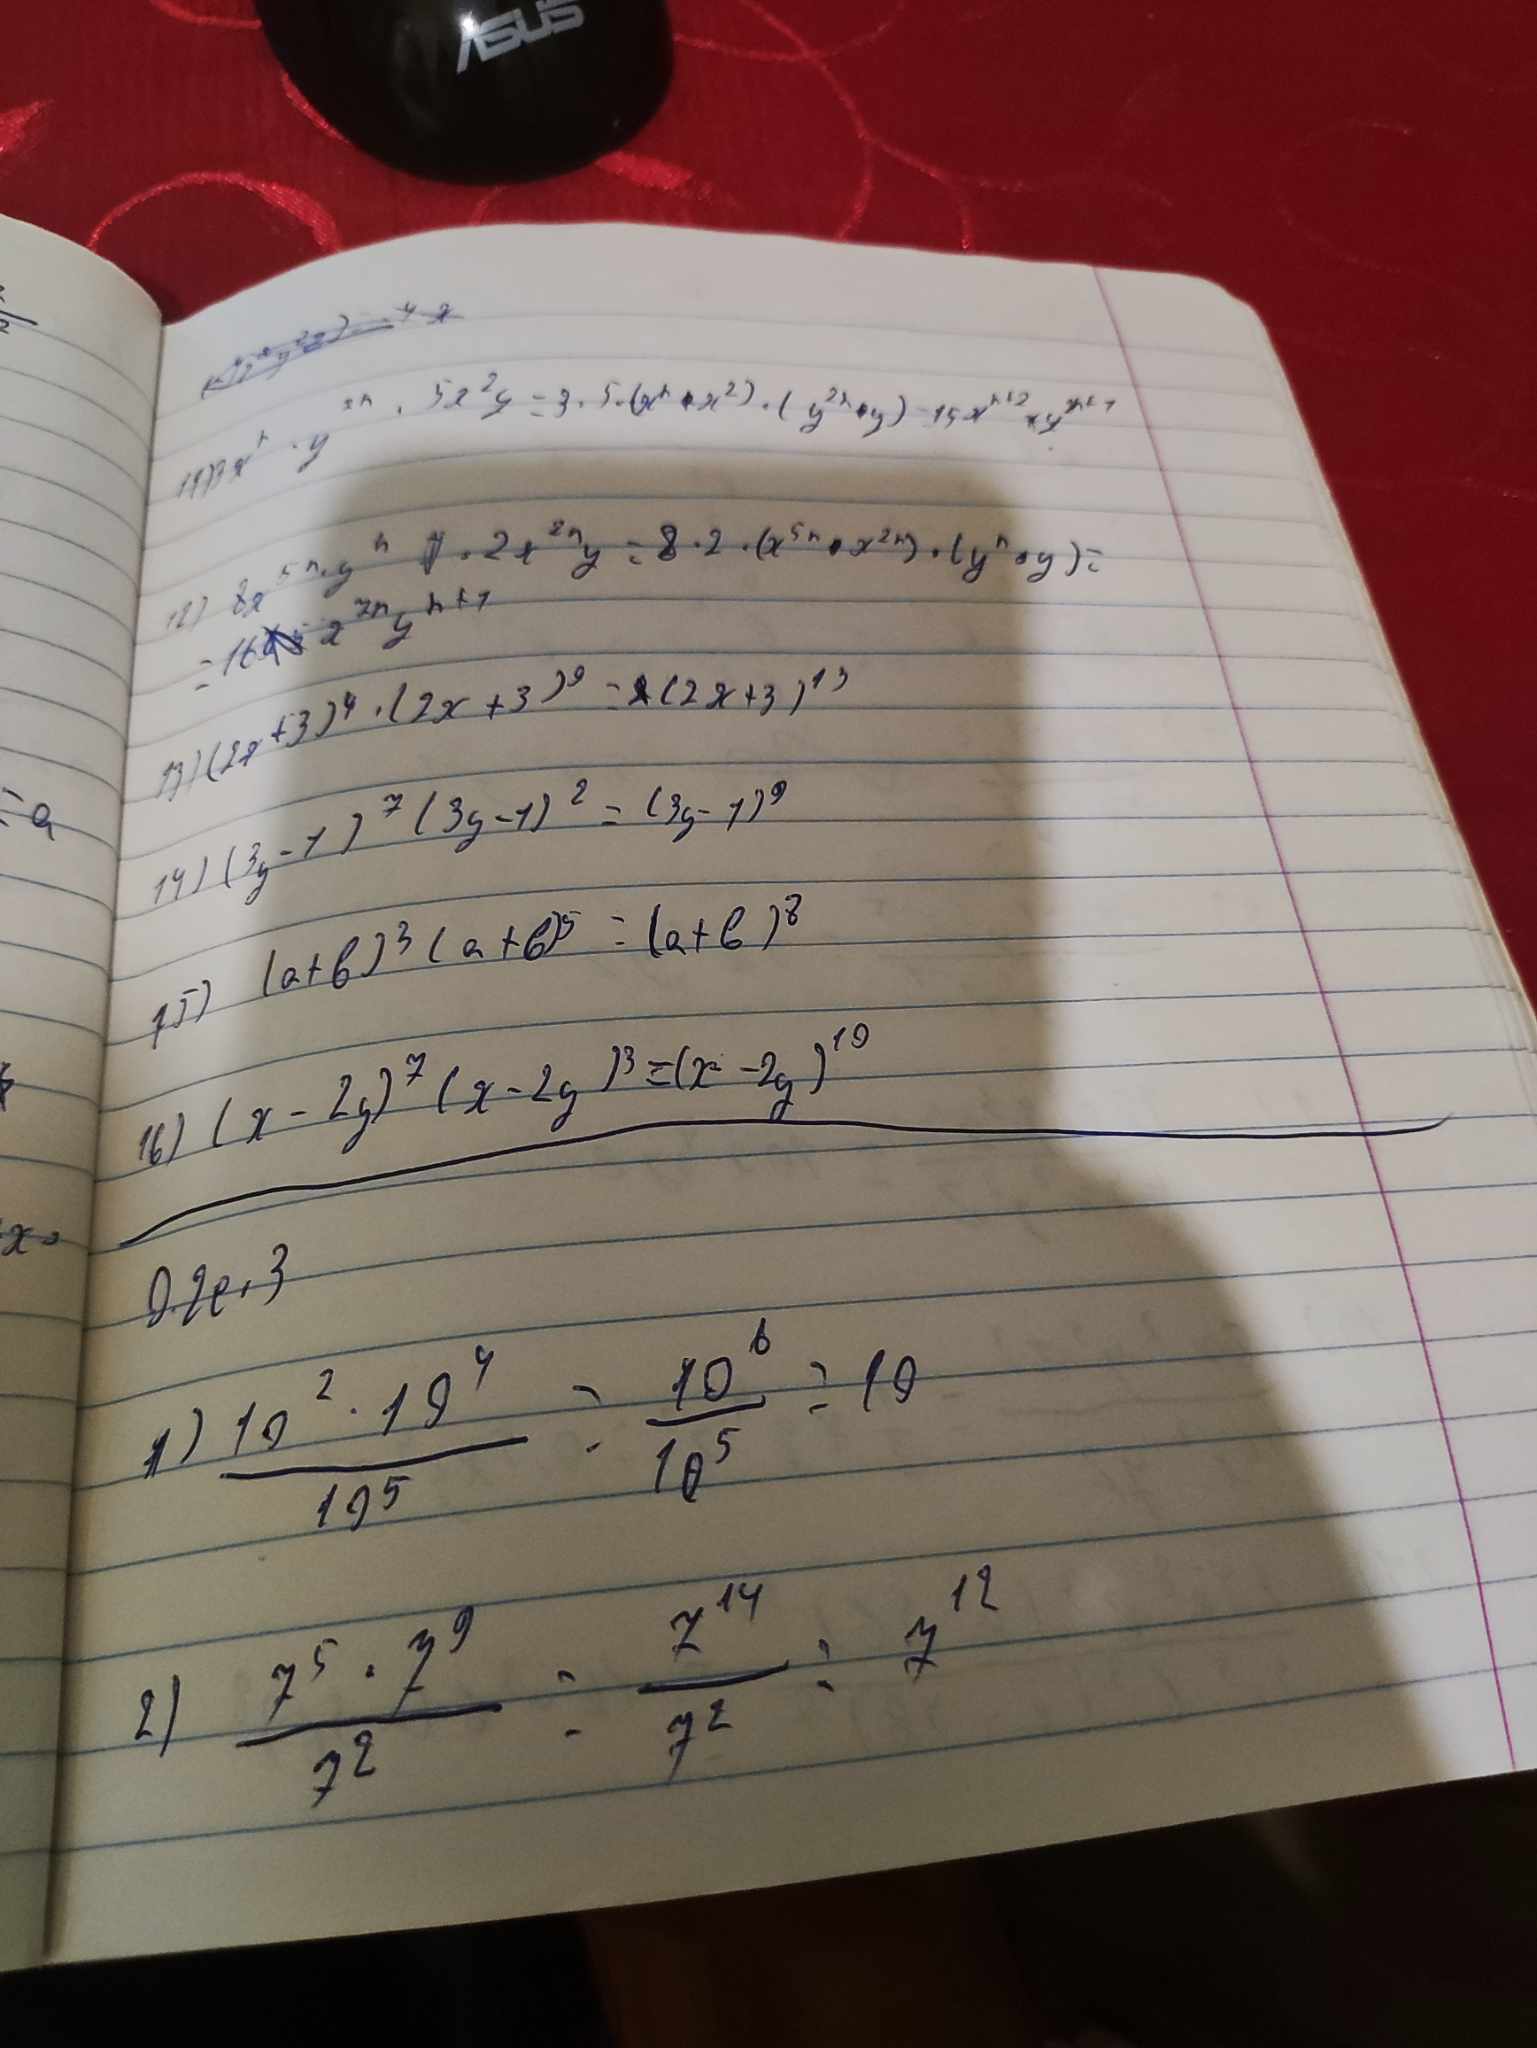 ASUS
11) 3x^n · y^2n · 5x^2y = 3 · 5 · (x^n · x^2) · (y^2n · y) = 15x^n+2 · y^2n+1
12) 8x^5n · y^n · 2x^2n y = 8 · 2 · (x^5n · x^2n) · (y^n · y) =
= 16 x^7n y^n+1
13) (2x+3)^4 · (2x+3)^9 = (2x+3)^13
14) (3y-1)^7 (3y-1)^2 = (3y-1)^9
= a
15) (a+b)^3 (a+b)^5 = (a+b)^8
16) (x-2y)^7 (x-2y)^3 = (x-2y)^10
1) 10^2 · 10^4 / 10^5 = 10^6 / 10^5 = 10
2) 7^5 · 7^9 / 7^2 = 7^14 / 7^2 = 7^12